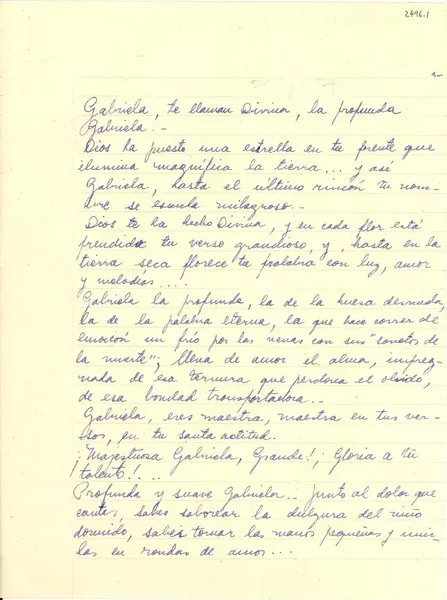 2496.1
1-
Gabriela, te llaman Divina, la profunda
Gabriela.-
Dios ha puesto una estrella en tu frente que
ilumina magnífica la tierra... y así
Gabriela, hasta el último rincón tu nom-
bre se escucha milagroso.-
Dios te ha hecho Divina, y en cada flor está
prendido tu verso grandioso, y, hasta en la
tierra seca florece tu palabra con luz, amor
y melodías....
Gabriela la profunda, la de la huesa desnuda,
la de la palabra eterna, la que hace correr de
emoción un frío por las venas con sus "sonetos de
la muerte"; llena de amor el alma, impreg-
nada de esa ternura que perdona el olvido,
de esa bondad transportadora..-
Gabriela, eres maestra, maestra en tus ver-
sos, en tu santa actitud.
¡Majestuosa Gabriela, Grande!; Gloria a tu
¡talento!....
Profunda y suave Gabriela... junto al dolor que
cantas, sabes saborear la dulzura del niño
dormido, sabes tomar las manos pequeñas y
las en rondas de amor...